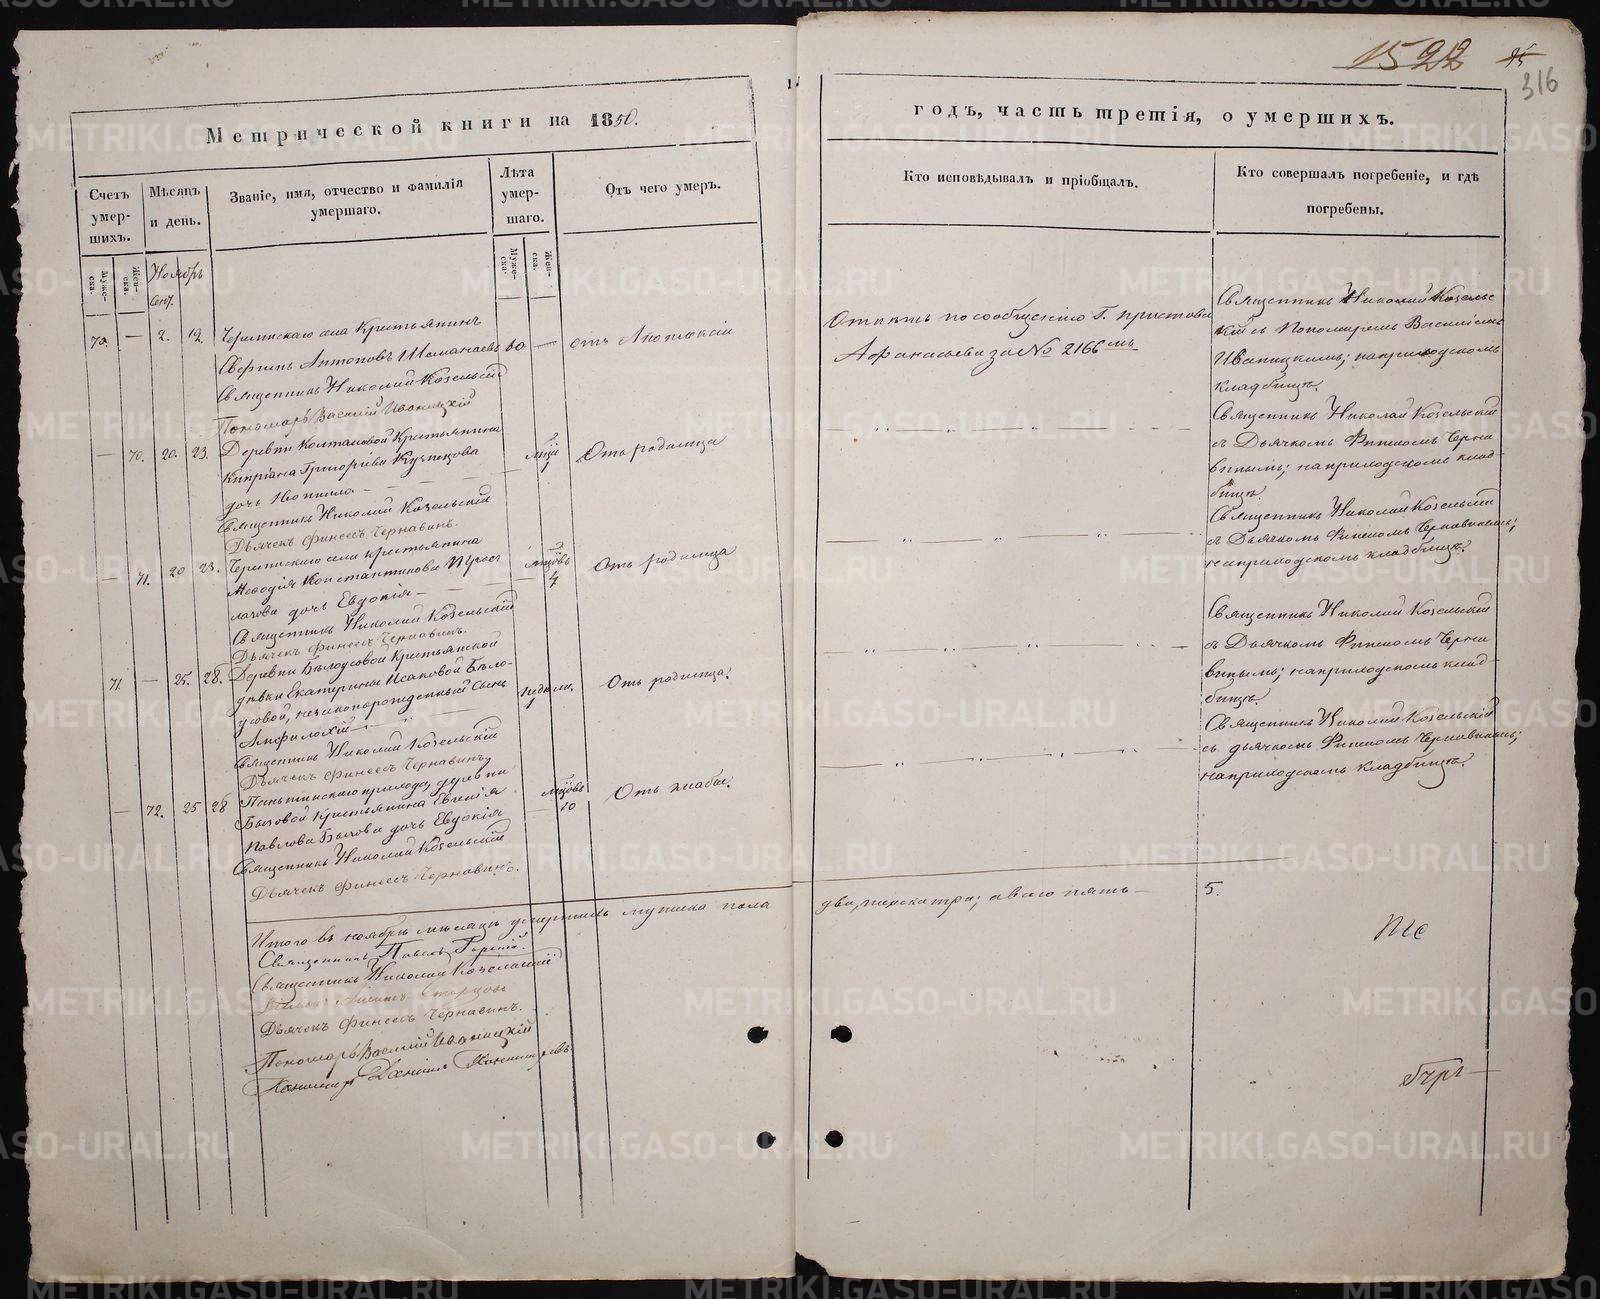 1522
316
Метрической книги на 1850.
годъ, часть третія, о умершихъ.
Счетъ умер-шихъ.
Мѣсяцъ и день.
Званіе, имя, отчество и фамилія умершаго.
Лѣта умер-шаго.
Отъ чего умеръ.
Кто исповѣдывалъ и пріобщалъ.
Кто совершалъ погребеніе, и гдѣ погребены.
Муже-ска.
Жен-ска.
Муже-ска.
Жен-ска.
Ноябрь
70. — 2. 12.
села Крестьянинъ
Антоновъ
60 —
отъ Апоплексіи
Священникъ Николай Козельскій
Пономарь Василій Иваницкій
по сообщенію Г. пристава
Афанасьева за № 2166мъ
Священникъ Николай Козельс
кій съ Пономаремъ Василіемъ
Иваницкимъ; на приходскомъ
кладбищѣ.
— 70. 20. 23.
Деревни Колташовой Крестьянина
Кипріана Григорьева Кузнецова
дочь
1
Отъ родимца
Священникъ Николай Козельскій
Дьячекъ Финеесъ Чернавинъ.
Священникъ Николай Козельскій
съ Дьячкомъ Финеесомъ Черна
винымъ; на приходскомъ клад-
бищѣ.
— 71. 20 23.
села крестьянина
Меѳодія Константинова
дочь Евдокія —
4
Отъ родимца
Священникъ Николай Козельскій
Дьячекъ Финеесъ Чернавинъ.
Священникъ Николай Козельскій
съ Дьячкомъ Финеесомъ Чернавинымъ;
на приходскомъ кладбищѣ.
71. — 25. 28.
Деревни Бѣлоусовой Крестьянской
дѣвки Екатерины Исаковой Бѣло-
усовой, незаконнорожденный сынъ
Амфилохій —
1
Отъ родимца.
Священникъ Николай Козельскій
Дьячекъ Финеесъ Чернавинъ,
Священникъ Николай Козельскій
съ Дьячкомъ Финеесомъ Черна
винымъ; на приходскомъ клад-
бищѣ.
— 72. 25 28
прихода, деревни
Бызовой Крестьянина Евгенія
Павлова Бызова дочь Евдокія
10
Отъ жабы.
Священникъ Николай Козельскій
Дьячекъ Финеесъ Чернавинъ.
Священникъ Николай Козельскій
съ дьячкомъ Финеесомъ Чернавинымъ;
на приходскомъ кладбищѣ.
Итого въ ноябрѣ мѣсяцѣ умершихъ мужеска пола
два, женска три; а всего пять — 5.
Священникъ Павелъ
Священникъ Николай Козельскій
Дьячекъ Финеесъ Чернавинъ.
Пономарь Василій Иваницкій
Пономарь